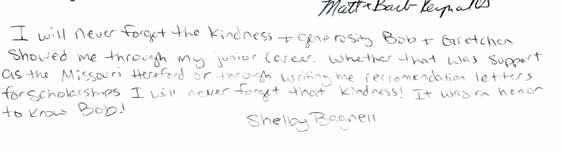 Matt + Barb Reynolds
I will never forget the kindness + generosity Bob + Gretchen
showed me through my junior career. Whether that was support
as the Missouri Hereford or through writing me reccomendation letters
for scholarships I will never forget that kindness! It was an honor
to know Bob!
Shelby Bagnell